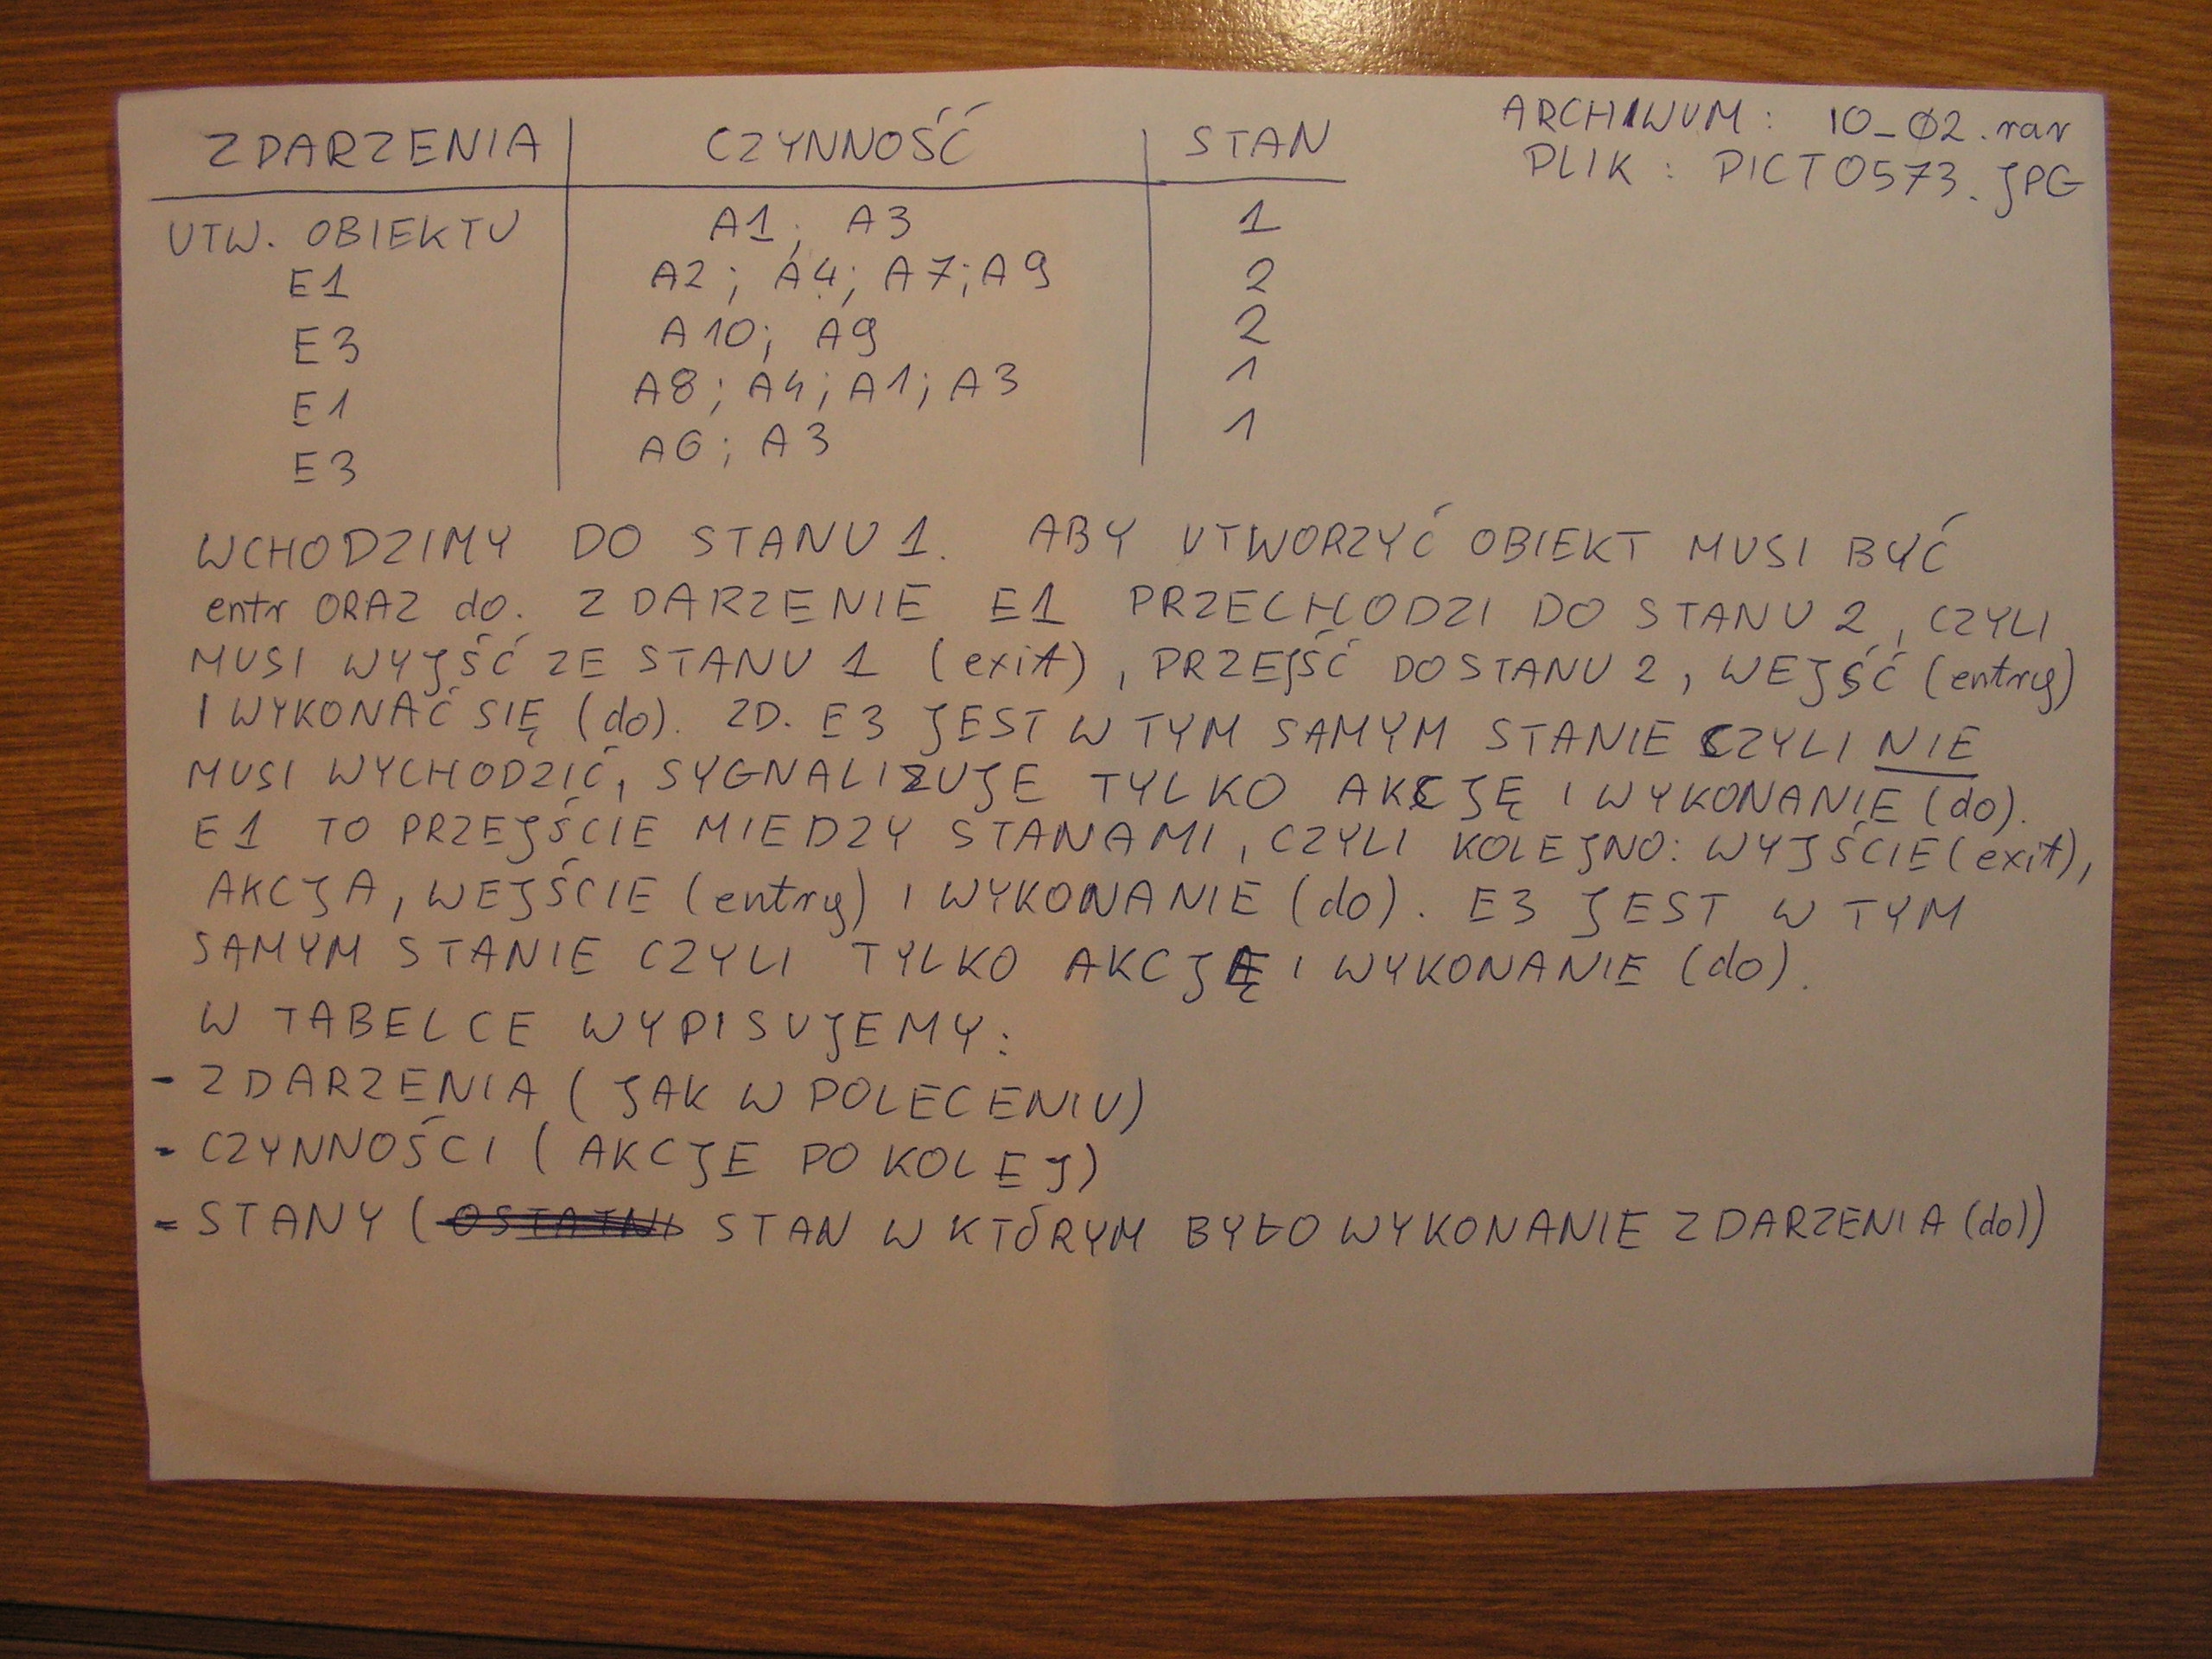 ZDARZENIA CZYNNOŚĆ STAN
ARCHIWUM: IO_02.rar
PLIK: PICT0573.JPG
UTW. OBIEKTU A1; A3 1
E1 A2; A4; A7; A9 2
E3 A10; A9 2
E1 A8; A4; A1; A3 1
E3 A6; A3 1
WCHODZIMY DO STANU 1. ABY UTWORZYĆ OBIEKT MUSI BYĆ
entr ORAZ do. ZDARZENIE E1 PRZECHODZI DO STANU 2, CZYLI
MUSI WYJŚĆ ZE STANU 1 (exit), PRZEJŚĆ DO STANU 2, WEJŚĆ (entry)
I WYKONAĆ SIĘ (do). ZD. E3 JEST W TYM SAMYM STANIE CZYLI NIE
MUSI WYCHODZIĆ, SYGNALIZUJE TYLKO AKCJĘ I WYKONANIE (do).
E1 TO PRZEJŚCIE MIEDZY STANAMI, CZYLI KOLEJNO: WYJŚCIE (exit),
AKCJA, WEJŚCIE (entry) I WYKONANIE (do). E3 JEST W TYM
SAMYM STANIE CZYLI TYLKO AKCJĘ I WYKONANIE (do).
W TABELCE WYPISUJEMY:
- ZDARZENIA (JAK W POLECENIU)
- CZYNNOŚCI (AKCJE PO KOLEJ)
- STANY (OSTATNI STAN W KTÓRYM BYŁO WYKONANIE ZDARZENIA (do))